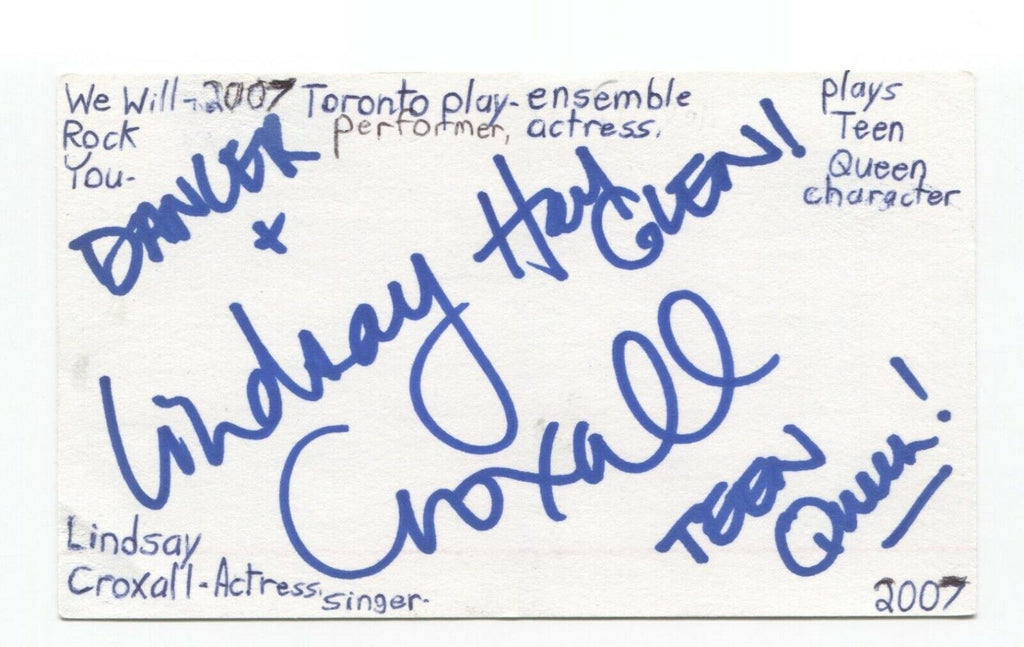 We Will - 2007 Toronto play - ensemble plays
Rock performer, actress. Teen
You - Queen
character
DANCER
+
Hey GLEN!
Lindsay
Croxall
TEEN
Queen!
Lindsay
Croxall - Actress, singer.
2007